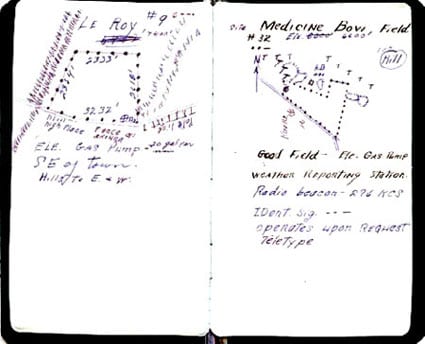 LE ROY
# 9
2333'
2334'
3232'
High Place Fence
ELE. GAS PUMP
SE of Town.
Hills To E & W.
Site
MEDICINE BOW, Field
# 32
N
T T T T
T
T
Hill
Good Field - Ele. GAS PUMP
WEATHER REPORTING STATION.
Radio beacon - 296 KCS
IDent. Sig. - - -
operates upon REQUEST
Teletype